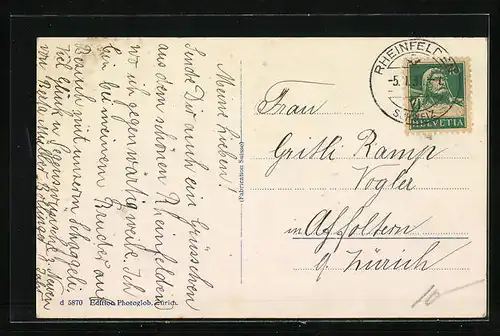 Meine Lieben!
Sende Dir auch ein Grüsschen
aus dem schönen Rheinfelden
wo ich gegenwärtig weile. Ich
bin bei meinem Bruder auf
Besuch mit unserm
viel Glück u. Segenswünsche z. Neuen
von
Jahr
d 5870 Edition Photoglob, Zürich.
(Fabrication Suisse)
RHEINFELDEN
-5. I. 3
HELVETIA
Frau
Gritli Ramp
Vogler
in Affoltern
b. Zürich
10